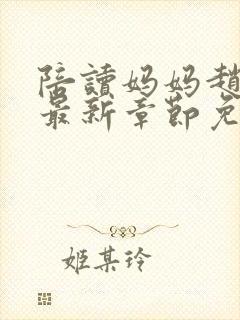 陪讀妈妈趙
最新章節免
姬某玲